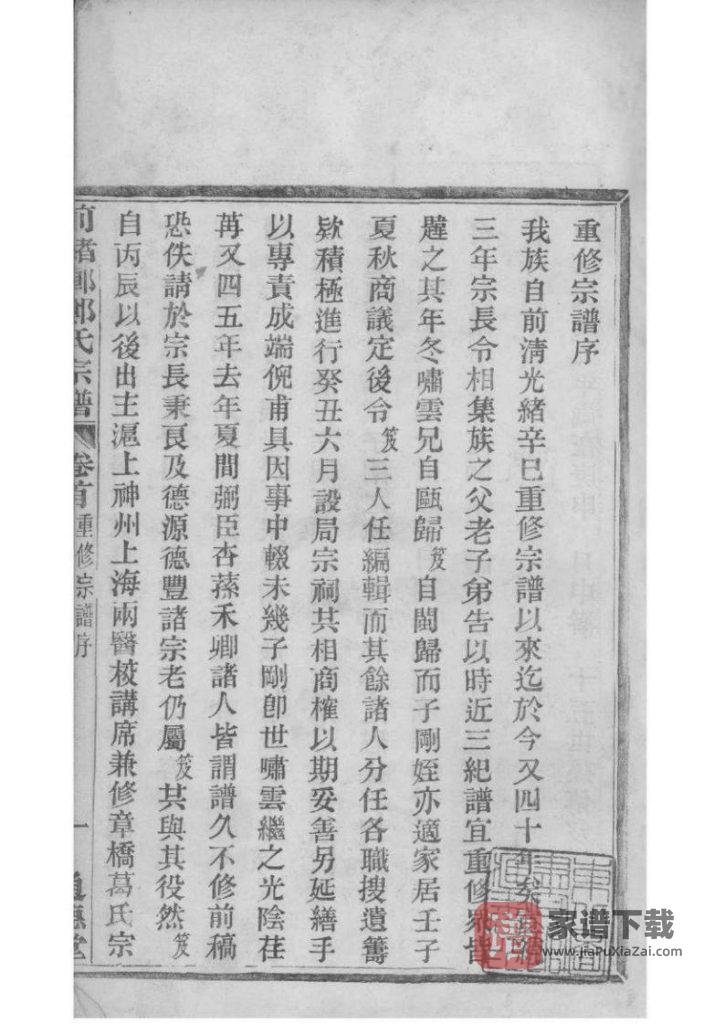 重修宗譜序
我族自前清光緒辛巳重修宗譜以來迄於今又四十年矣
三年宗長令相集族之父老子弟告以時近三紀譜宜重修眾皆
韙之其年冬嘯雲兄自甌歸笈自閩歸而子剛姪亦適家居壬子
夏秋商議定後令笈三人任編輯而其餘諸人分任各職搜遺籌
欵積極進行癸丑六月設局宗祠共相商榷以期妥善另延繕手
以專責成端倪甫具因事中輟未幾子剛卽世嘯雲繼之光陰荏
苒又四五年去年夏間弼臣杏蓀禾卿諸人皆謂譜久不修前稿
恐佚請於宗長秉良及德源德豐諸宗老仍屬笈共與其役然笈
自丙辰以後出主滬上神州上海兩醫校講席兼修章橋葛氏宗
氏宗譜 卷首 重修宗譜序 一
家谱下载
www.jiaPuXiaZai.com